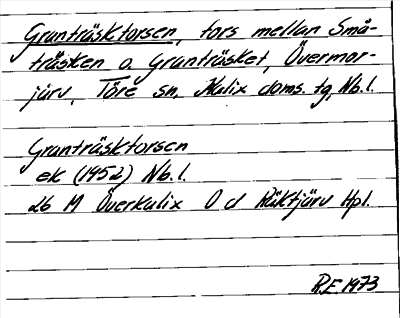 Granträsktorsen, tors mellan Små-
träsken o. Granträsket, Övermor-
järv, Töre sn, Kalix doms. tg, Nb. l.
Granträsktorsen
ek (1952) Nb. l.
26 M Överkalix O d Räktjärv Hpl.
R.E 1973